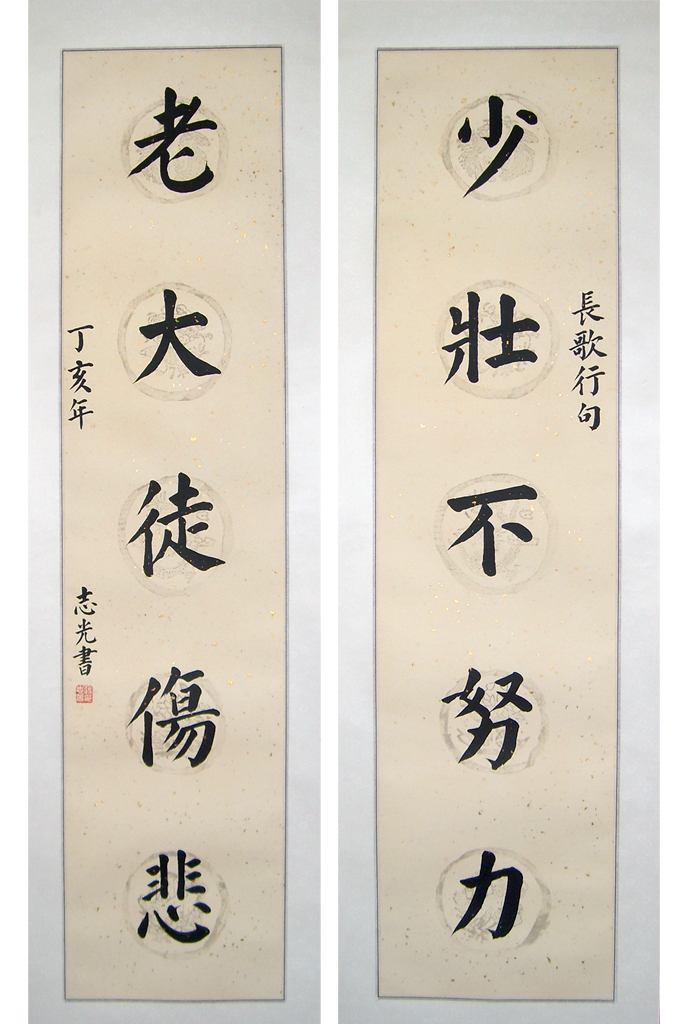 長歌行句
少壯不努力
老大徒傷悲
丁亥年
志光書